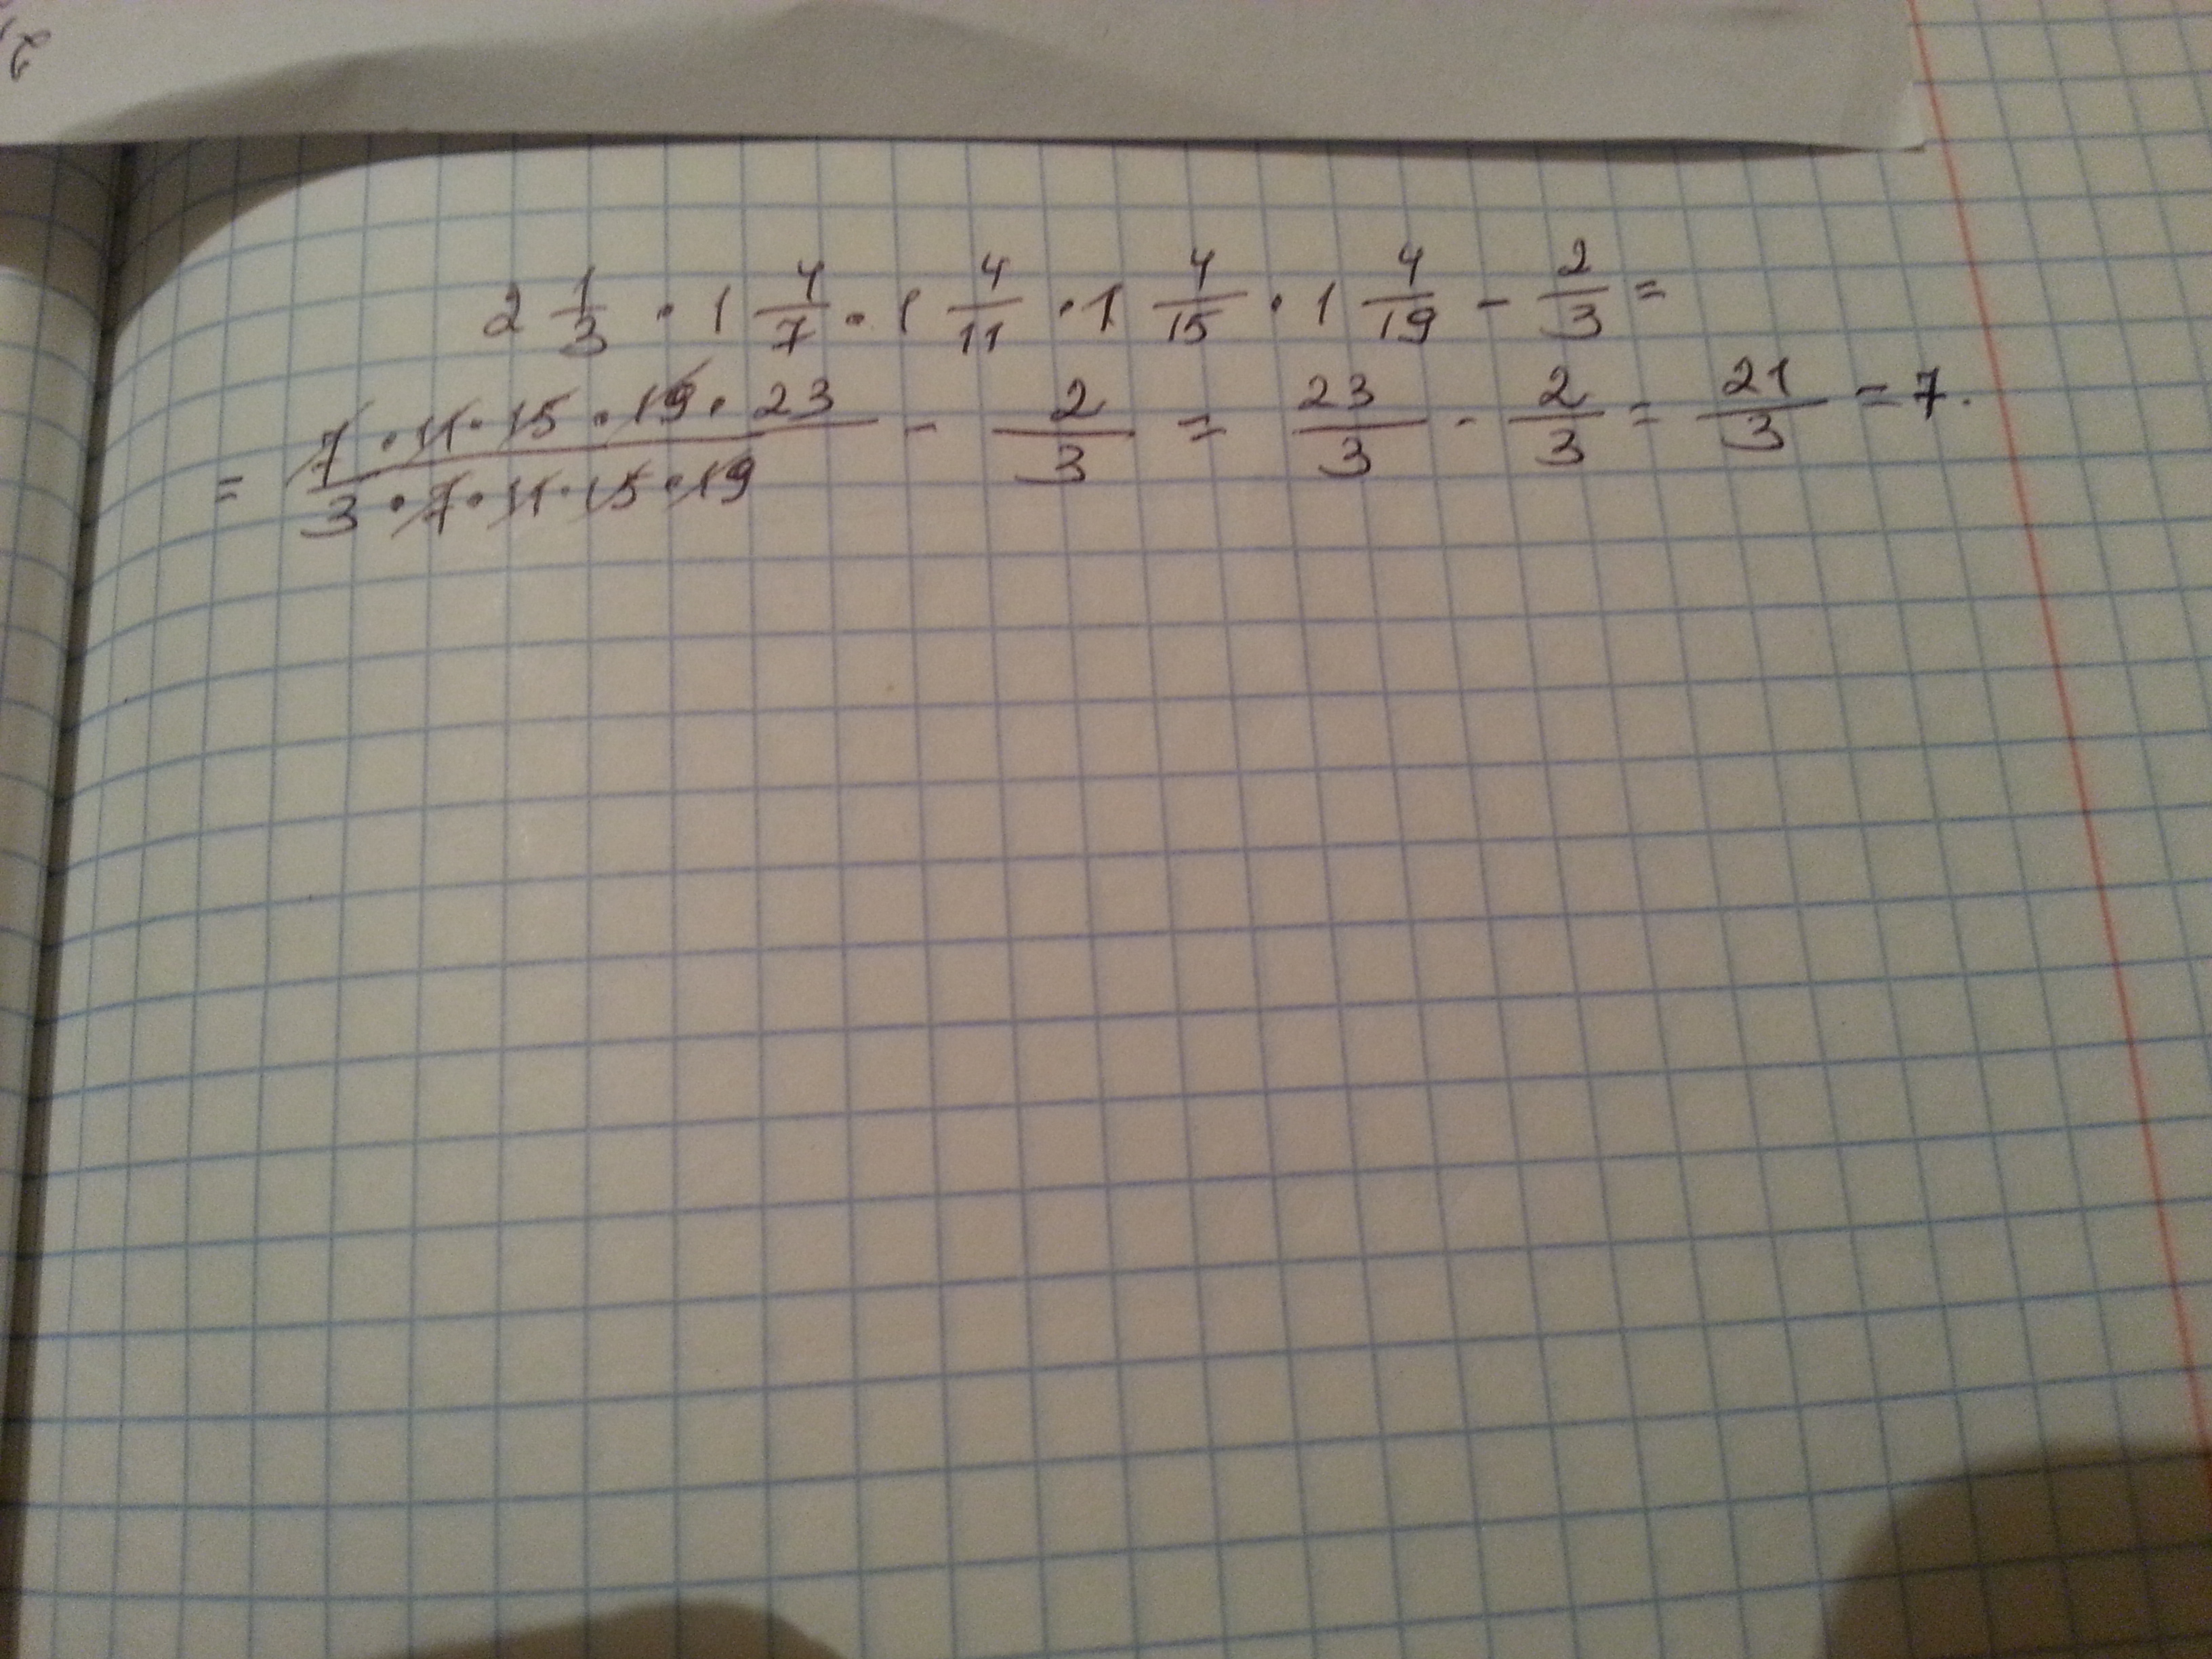 2 1/3 · 1 4/7 · 1 4/11 · 1 4/15 · 1 4/19 - 2/3 =
= (7 · 11 · 15 · 19 · 23)/(3 · 7 · 11 · 15 · 19) - 2/3 = 23/3 - 2/3 = 21/3 = 7.